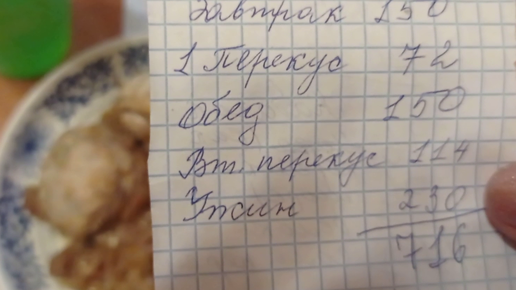 Завтрак 150
1 Перекус 72
Обед 150
Вт. перекус 114
Ужин 230
716